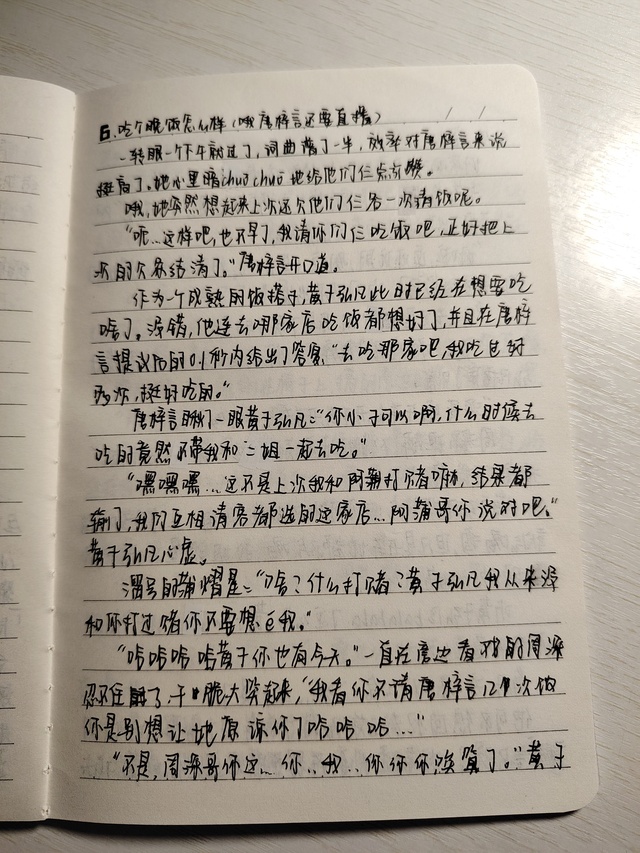 6.吃个晚饭怎么样(哦唐梓言还要直播)
一转眼一个下午就过了,词曲磨了一半,效率对唐梓言来说
挺高了。她心里暗chuō chuō地给他们仨点赞。
哦,她突然想起来上次还欠他们仨各一次请饭呢。
“呃…这样吧,也不早了,我请你们仨吃饭吧,正好把上
次的欠条结清了。”唐梓言开口道。
作为一个成熟的饭搭子,黄子弘凡此时已经在想要吃
啥了。没错,他连去哪家店吃饭都想好了,并且在唐梓
言提议后的0.1秒内给出了答案“去吃那家吧,我吃过好
多次,挺好吃的。”
唐梓言瞅了一眼黄子弘凡:“你小子可以啊,什么时候去
吃的竟然不带我和二姐一起去吃。”
“嘿嘿嘿…这不是上次我和阿蒲打赌嘛,结果都
输了,我们互相请客都选的这家店…阿蒲哥你说对吧。”
黄子弘凡心虚。
溜号的蒲熠星:“啥?什么打赌?黄子弘凡我从来没
和你打过赌你不要想cue我。”
“咔咔咔咔黄子你也有今天。”一直在旁边看戏的周深
忍不住了,干脆大笑起来,“我看你不请唐梓言几次饭
你是别想让她原谅你了咔咔咔…”
“不是,周深哥你这…你…我…你你你唉算了。”黄子